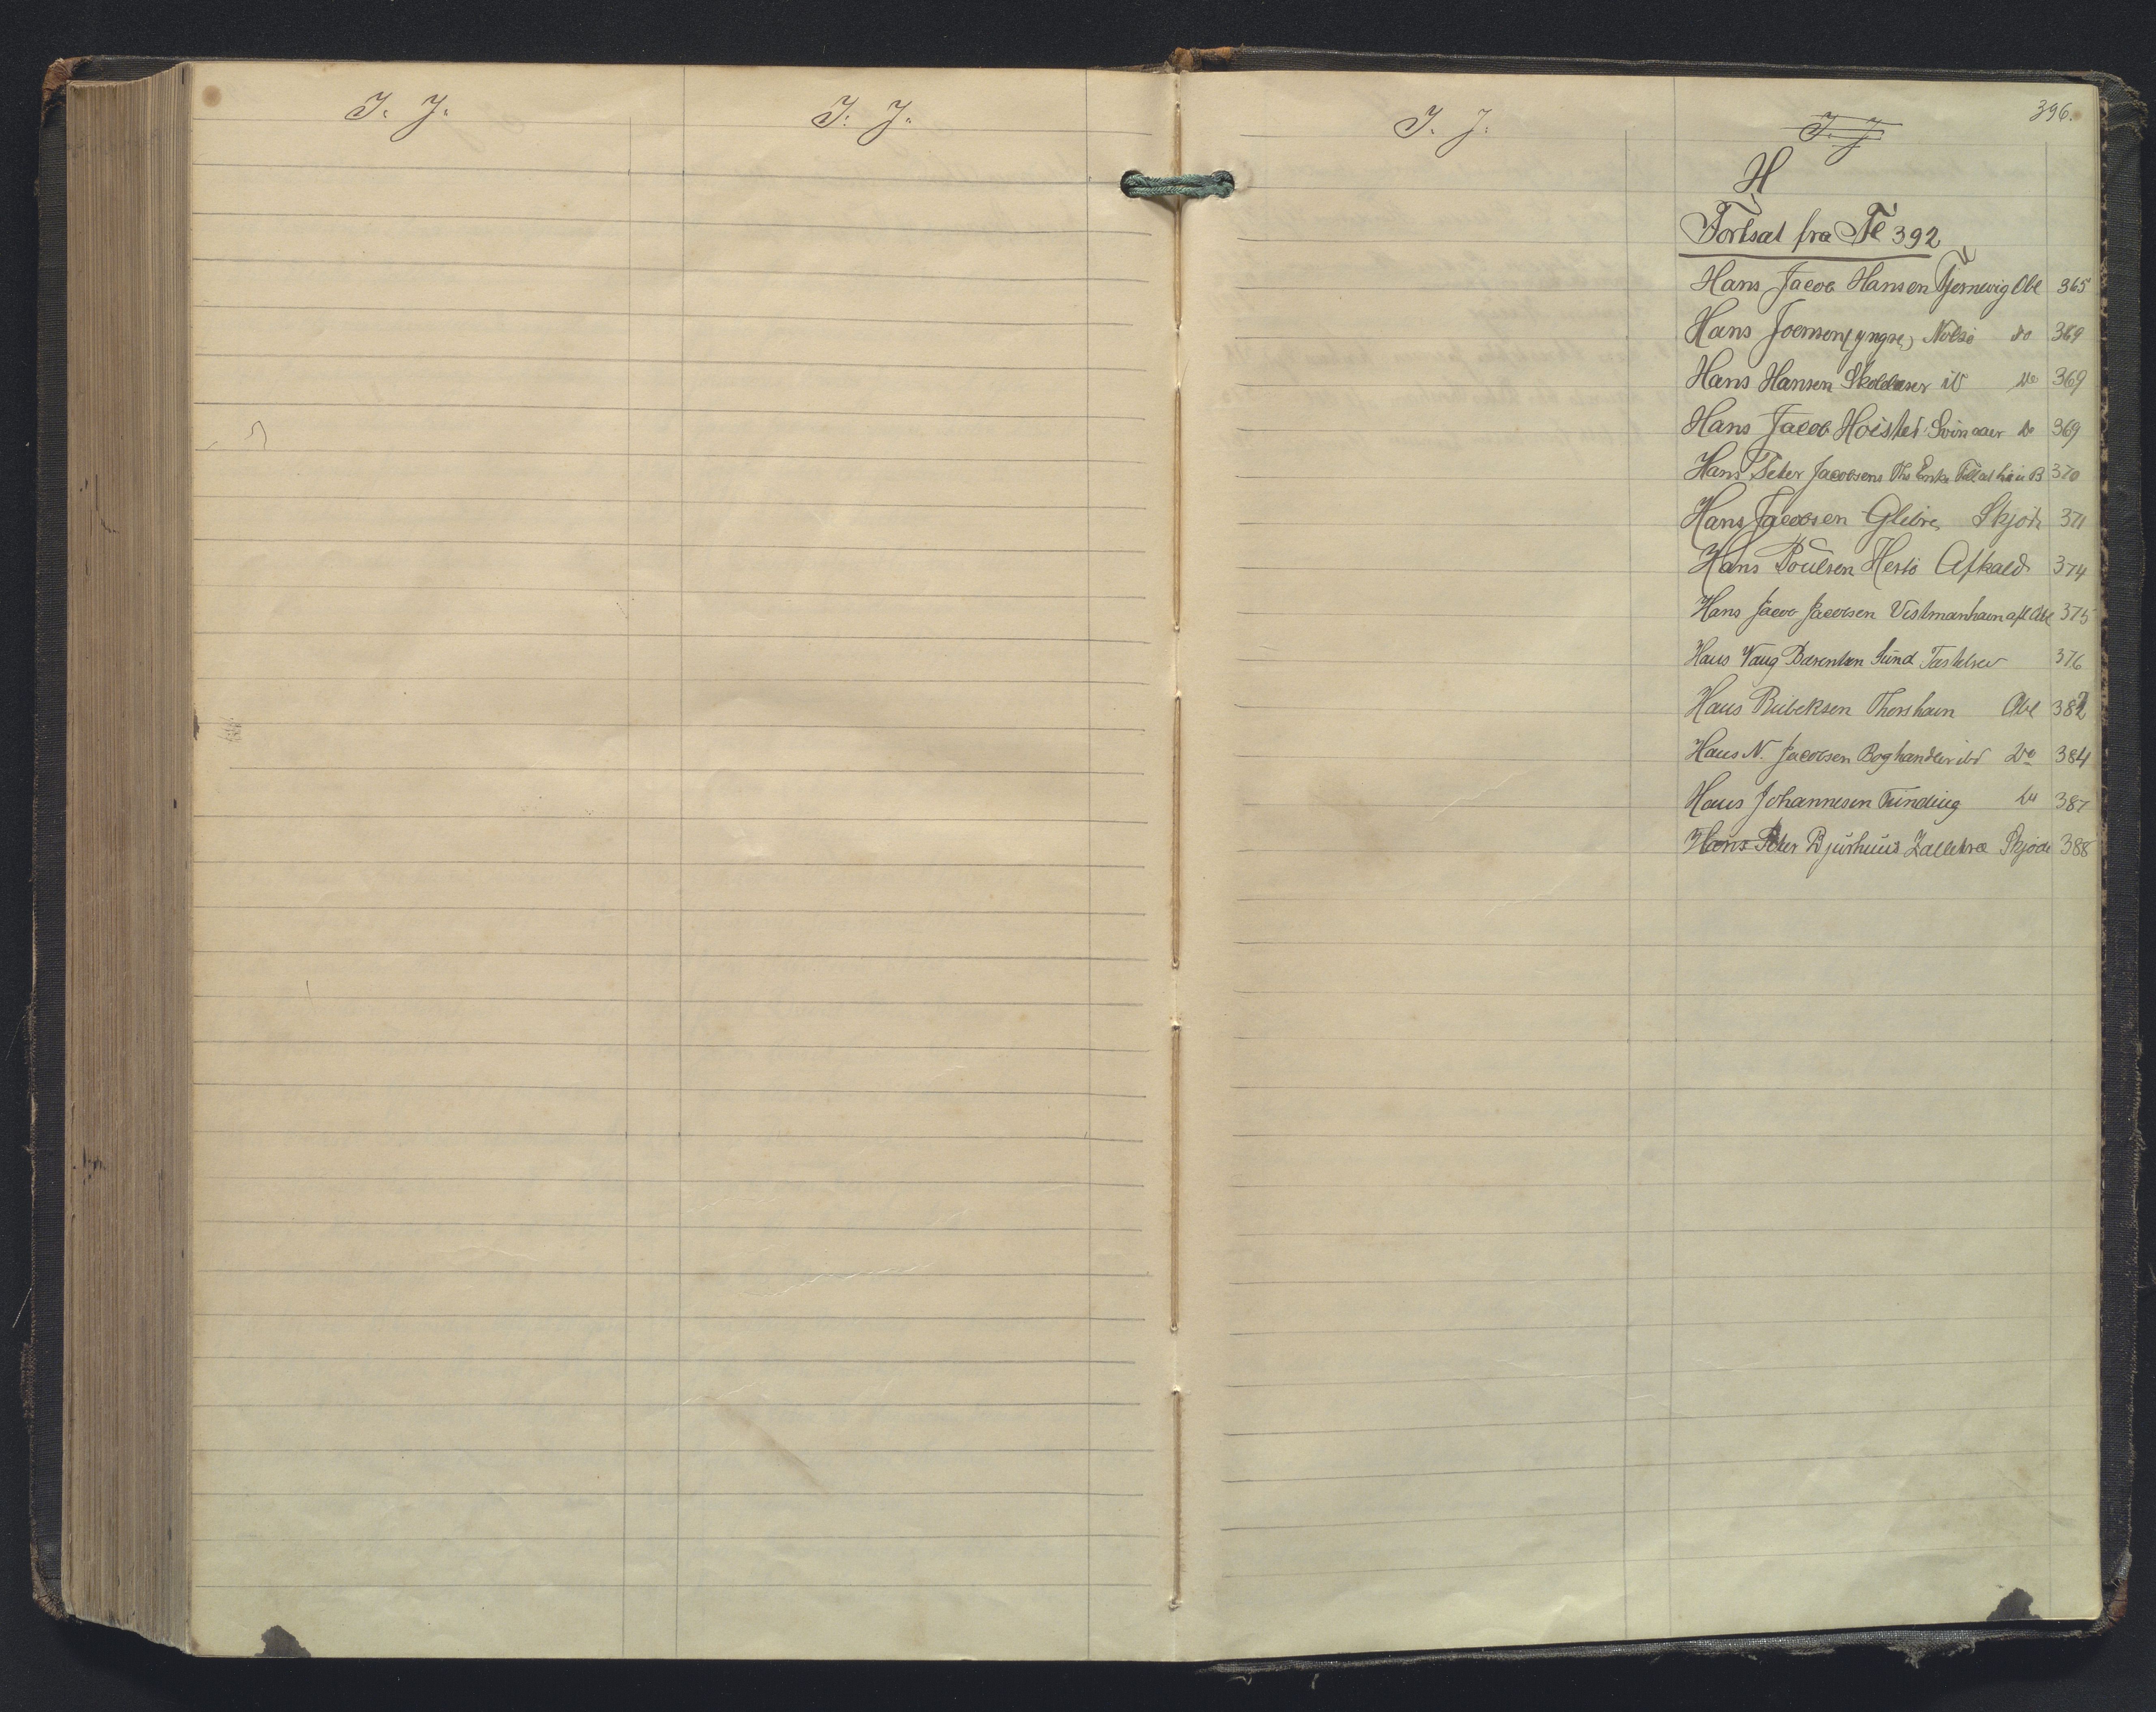 I. J.
I. J.
I. J.
396.
I. J
H
Fortsat fra Fo 392
Hans Jacob Hansen Tjørnevig Obl 365
Hans Joensen (yngre) Nolsö do 369
Hans Hansen Skolelærer ib do 369
Hans Jacob Höisted Svinaaer do 369
Hans Peter Jacobsens Enke 370
Hans Jacobsen Glibre Skjöde 371
Hans Poulsen Hestö Afkald 374
Hans Jacob Jacobsen Vestmanhavn Obl 375
Hans Vang Barentsen Sund 376
Hans Rubeksen Thorshavn Obl 382
Hans N. Jacobsen Boghandler ibd Do 384
Hans Johannesen Funding do 387
Hans Peter Djurhuus Skjöde 388